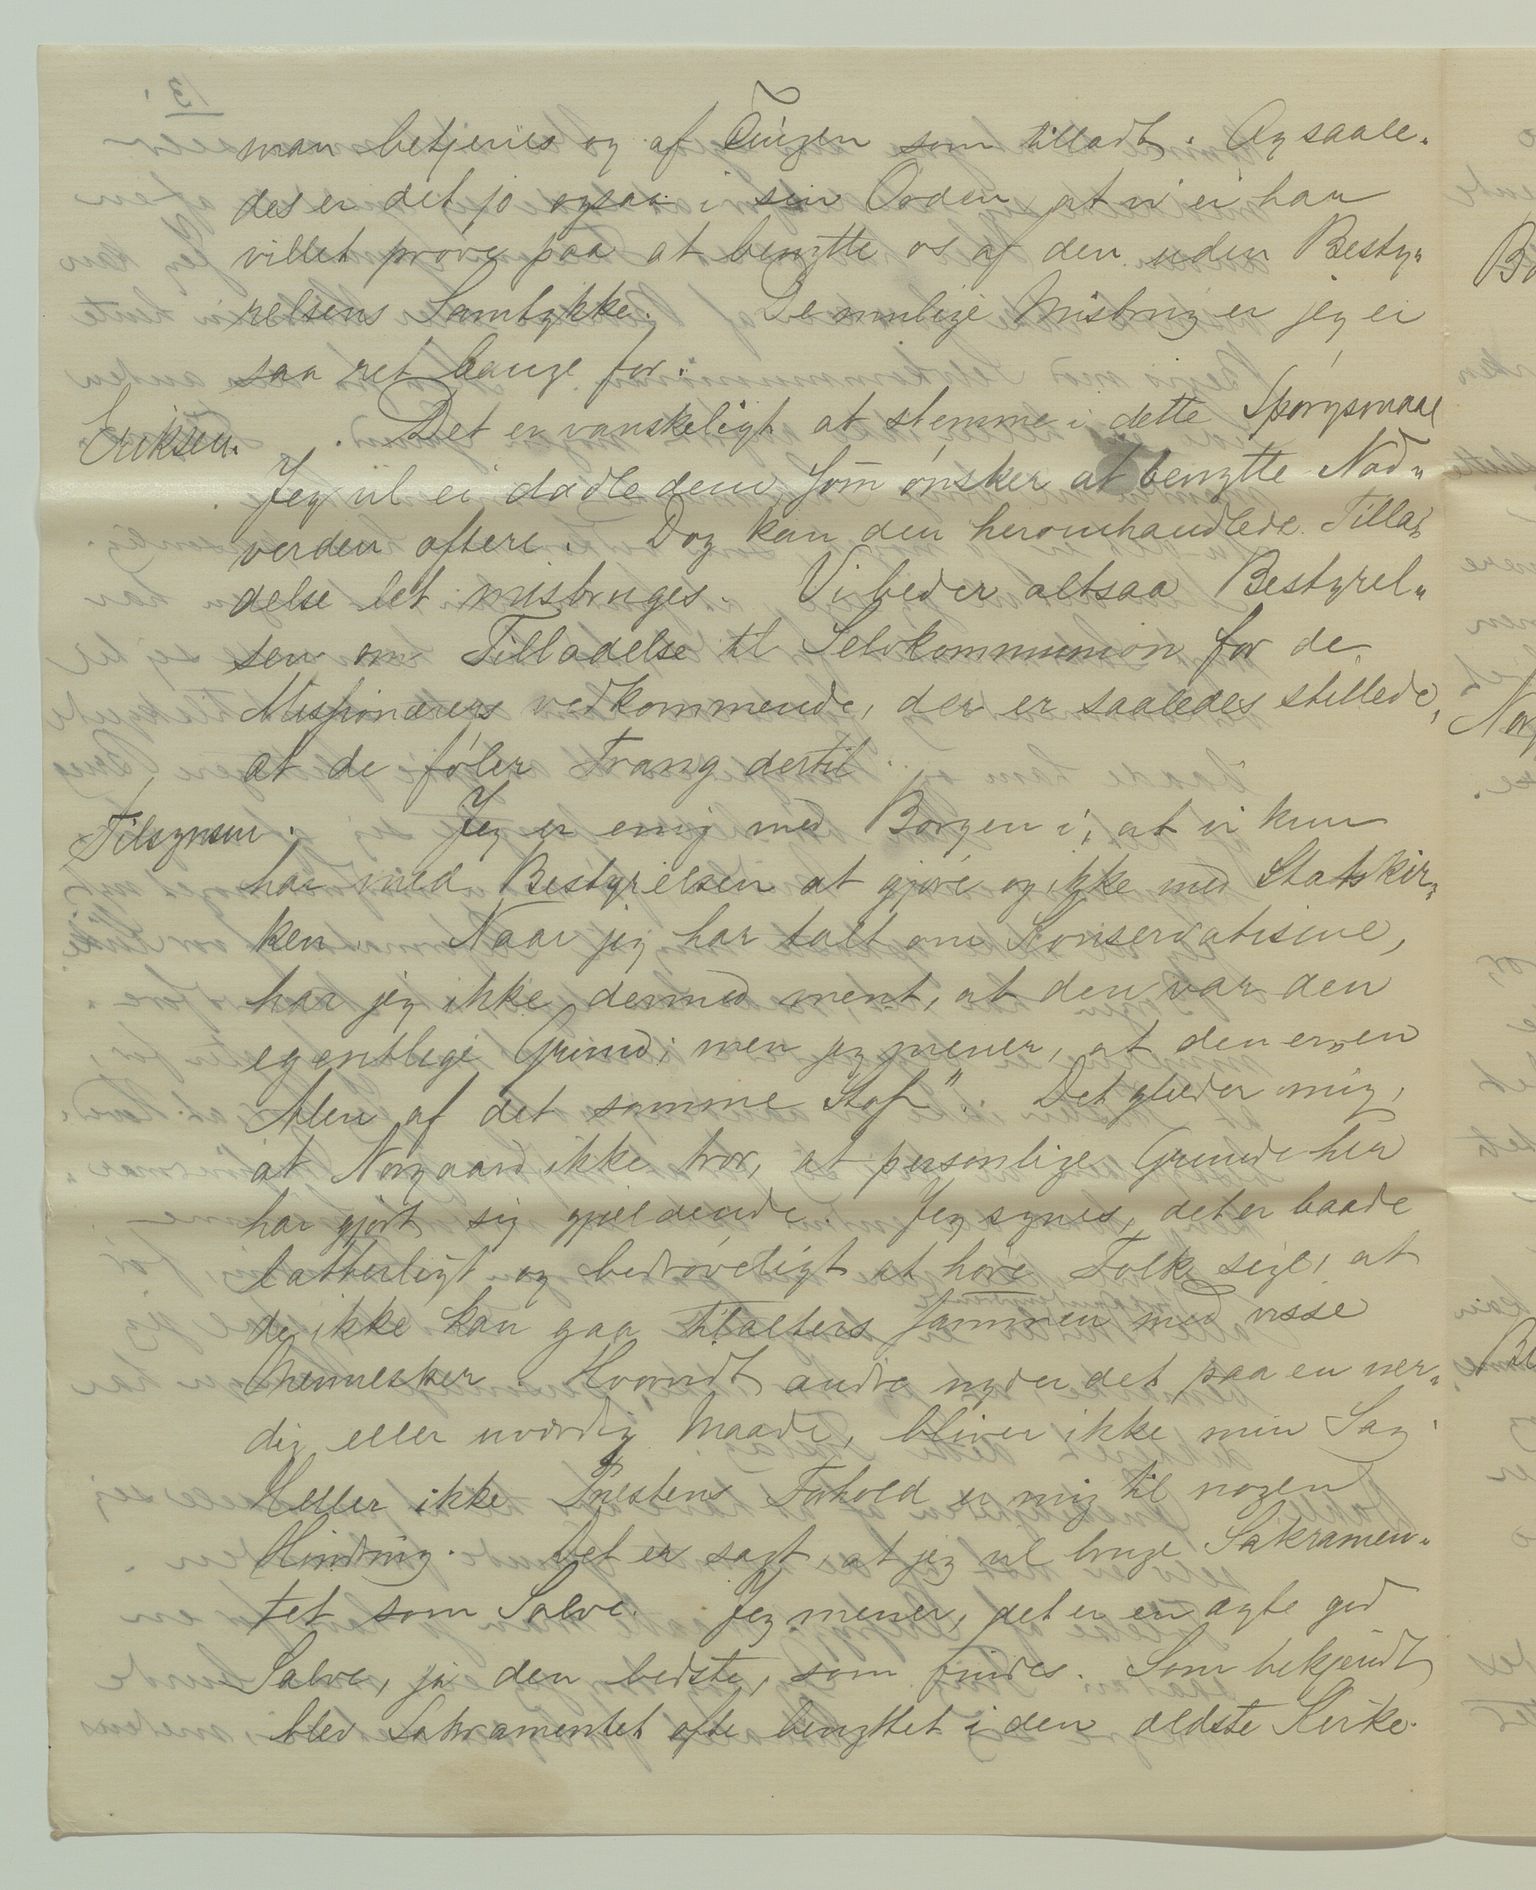 man betjenes og af Tingen som tilladt. Og saale„
des er det jo ogsaa i sin Orden, at vi ei har
villet prøve paa at benytte os af den uden Besty„
relsens Samtykke. De mulige Misbrug er jeg ei
saa ret bange for.
Eriksen. Det er vanskeligt at stemme i dette Spørgsmaal
Jeg vil ei dadle dem, som ønsker at benytte Nad„
verden oftere. Dog kan den heromhandlede Tilla„
delse let misbruges. Vi beder altsaa Bestyrel„
sen om Tilladelse til Selvkommunion for de
Missionærers vedkommende, der er saaledes stillede,
at de føler Trang dertil.
Tilsynsm. Jeg er enig med Borgen i, at vi kun
har med Bestyrelsen at gjøre og ikke med Statskir„
ken. Naar jeg har talt om Konservatisme,
har jeg ikke dermed ment, at den var den
egentlige Grund; men jeg mener, at den er „en
Alen af det samme Stof". Det glæder mig,
at Norgaard ikke tror, at personlige Grunde her
har gjort sig gjældende. Jeg synes, det er baade
latterligt og bedrøveligt at høre Folk sige, at
de ikke kan gaa tilalters sammen med visse
Mennesker. Hvorvidt andre nyder det paa en vær„
dig eller uværdig Maade, bliver ikke min Sag.
Heller ikke Prestens Forhold er mig til nogen
Hindring. Det er sagt, at jeg vil bruge Sakramen„
tet som Salve. Jeg mener, det er en ægte god
Salve, ja den bedste, som findes. Som bekjendt
blev Sakramentet ofte benyttet i den ældste Kirke.